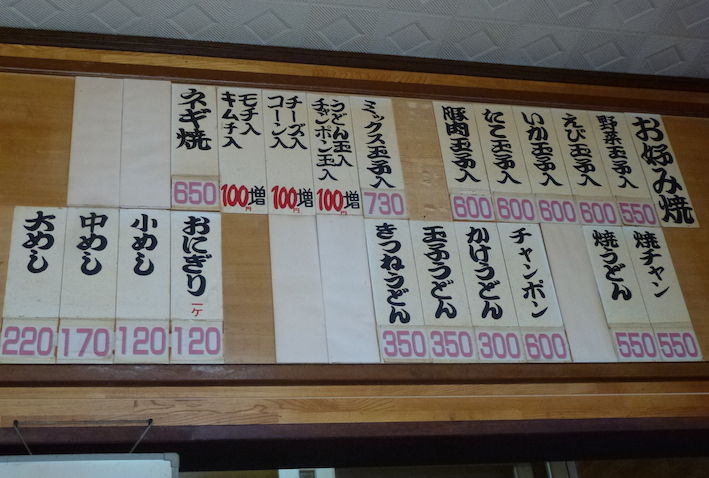 お好み焼
野菜玉子入 550
えび玉子入 600
いか玉子入 600
たこ玉子入 600
豚肉玉子入 600
ミックス玉子入 730
うどん玉入
チャンポン玉入
100円増
チーズ入
コーン入
100円増
モチ入
キムチ入
100円増
ネギ焼 650
焼チャン 550
焼うどん 550
チャンポン 600
かけうどん 300
玉子うどん 350
きつねうどん 350
おにぎり 一ケ 120
小めし 120
中めし 170
大めし 220